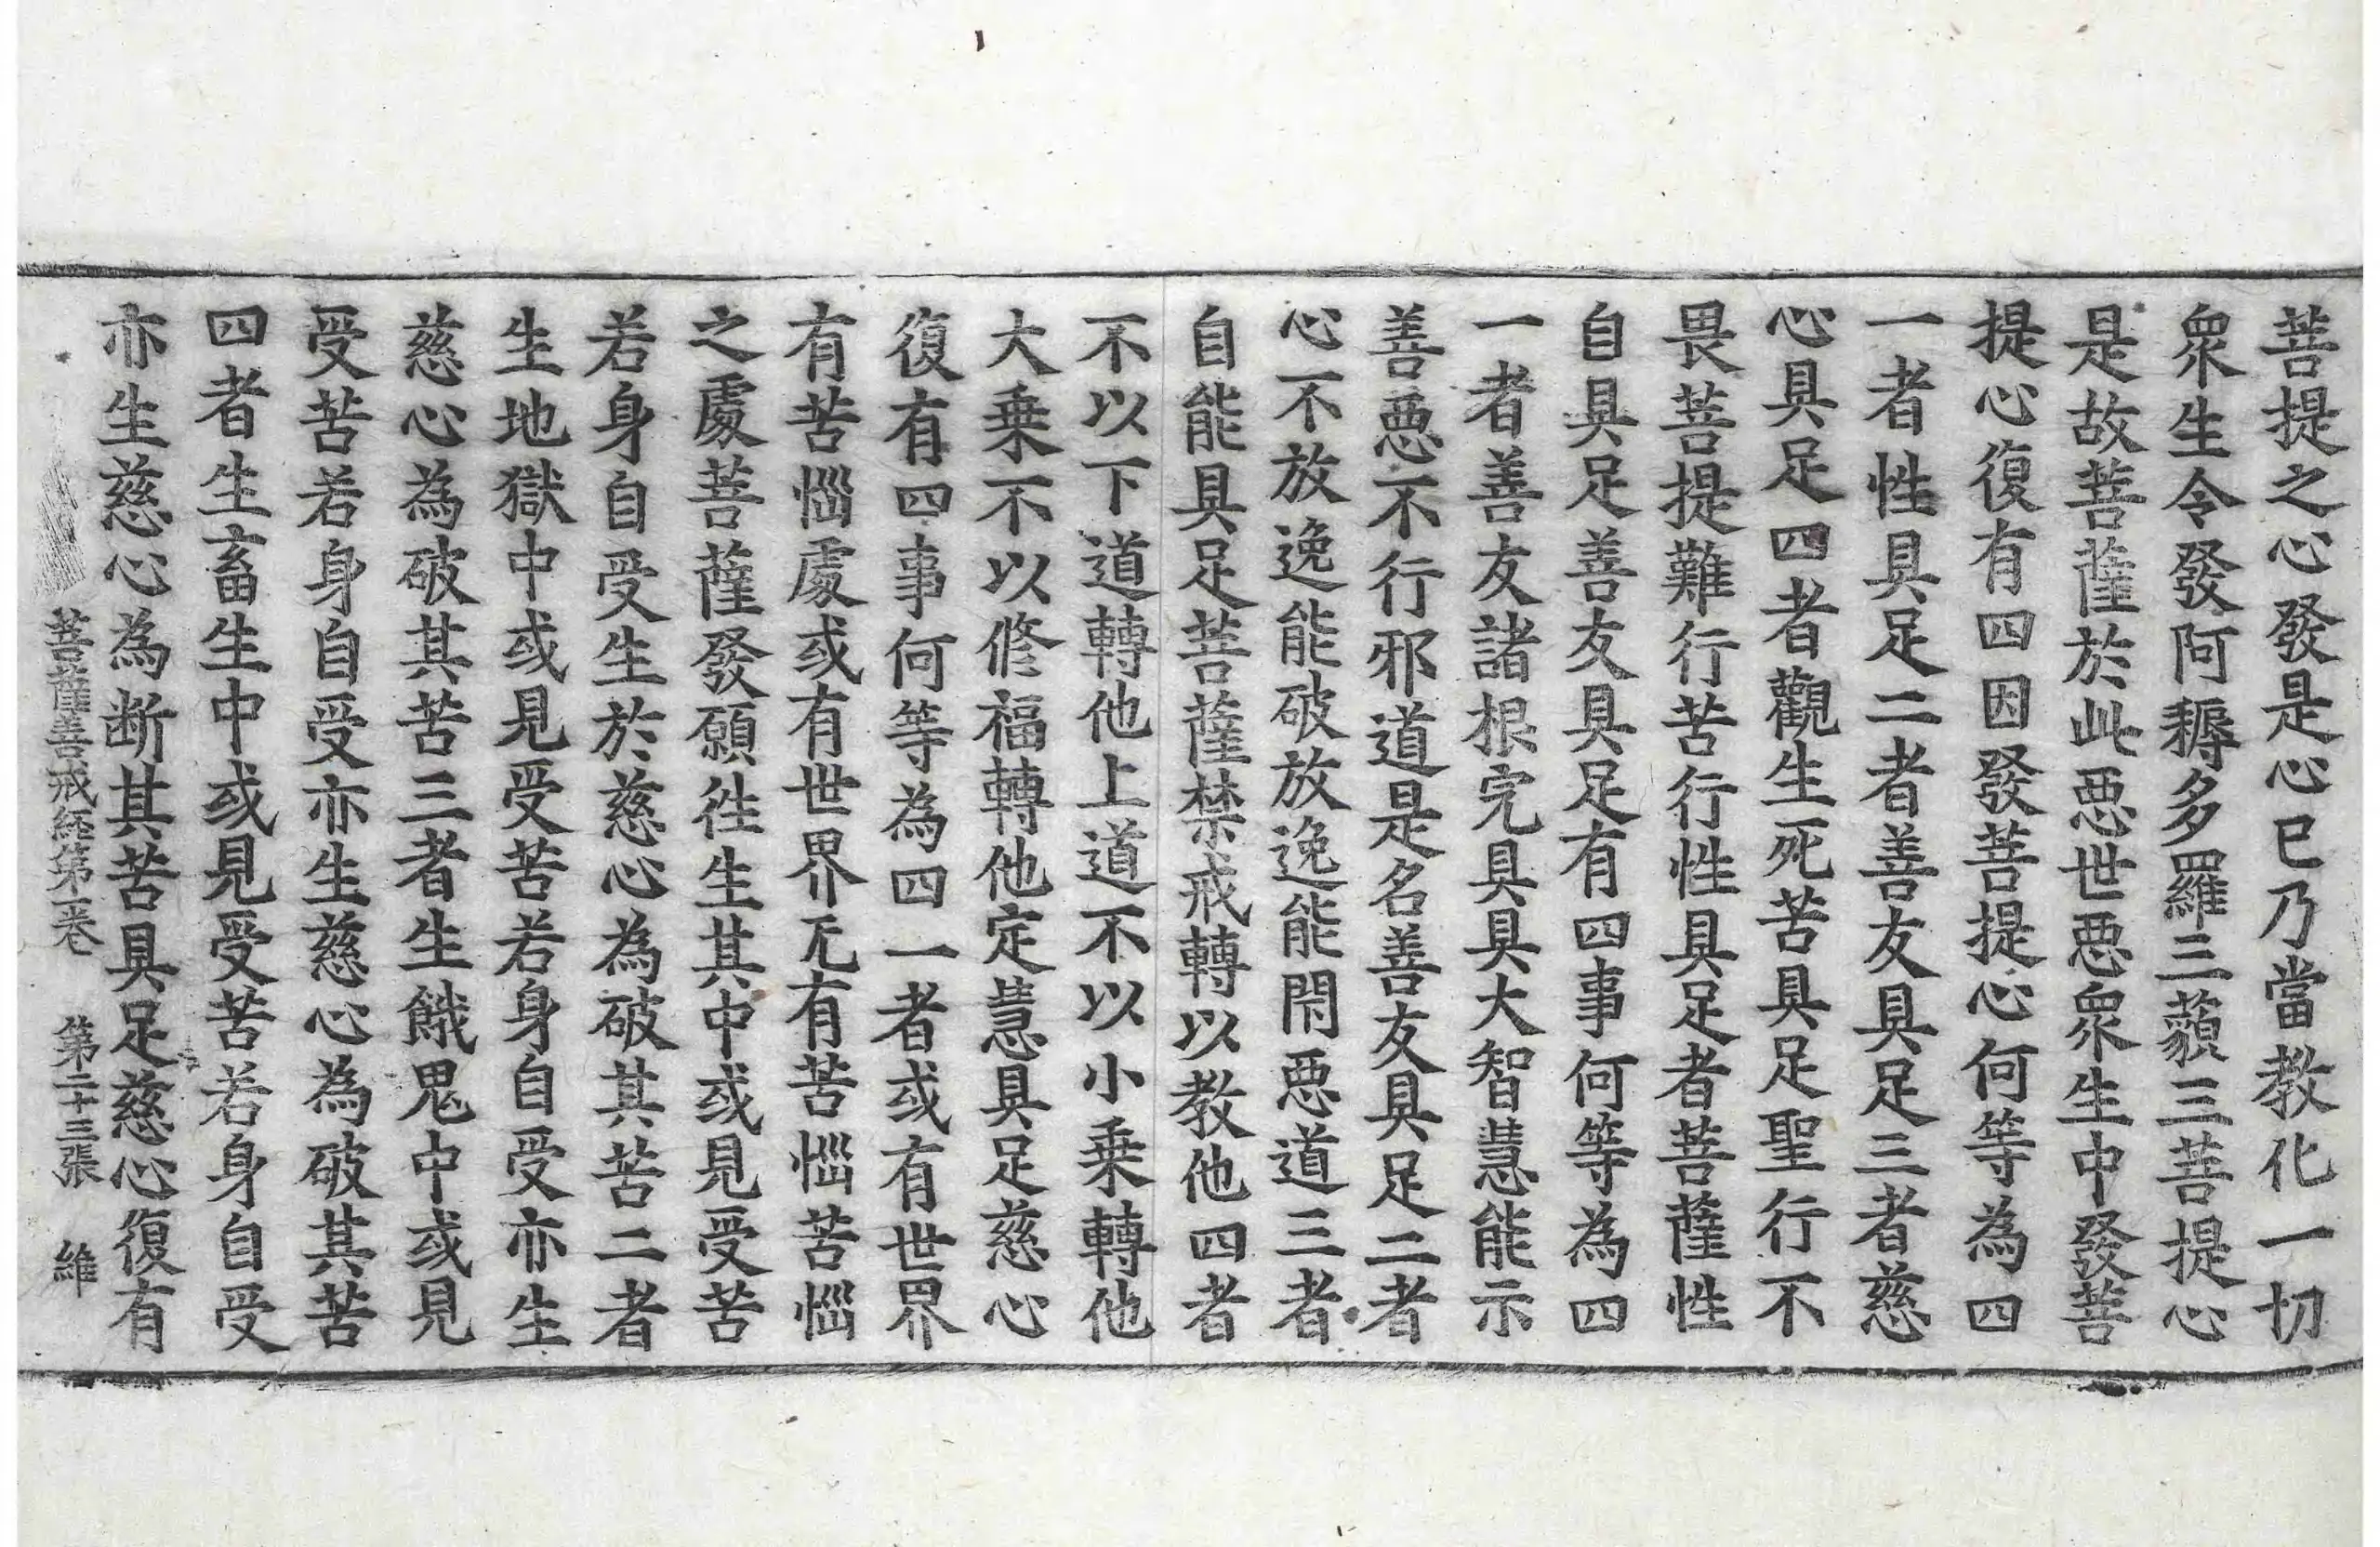 菩提之心發是心已乃當教化一切
衆生令發阿耨多羅三藐三菩提心
是故菩薩於此惡世惡衆生中發菩
提心復有四因發菩提心何等為四
一者性具足二者善友具足三者慈
心具足四者觀生死苦具足聖行不
畏菩提難行苦行性具足者菩薩性
自具足善友具足有四事何等為四
一者善友諸根完具具大智慧能示
善惡不行邪道是名善友具足二者
心不放逸能破放逸能閇惡道三者
自能具足菩薩禁戒轉以教他四者
不以下道轉他上道不以小乗轉他
大乗不以修福轉他定慧具足慈心
復有四事何等為四一者或有世界
有苦惱處或有世界无有苦惱苦惱
之處菩薩發願徃生其中或見受苦
若身自受生於慈心為破其苦二者
生地獄中或見受苦若身自受亦生
慈心為破其苦三者生餓鬼中或見
受苦若身自受亦生慈心為破其苦
四者生畜生中或見受苦若身自受
亦生慈心為断其苦具足慈心復有
菩薩善戒経第一卷 第二十三張 維